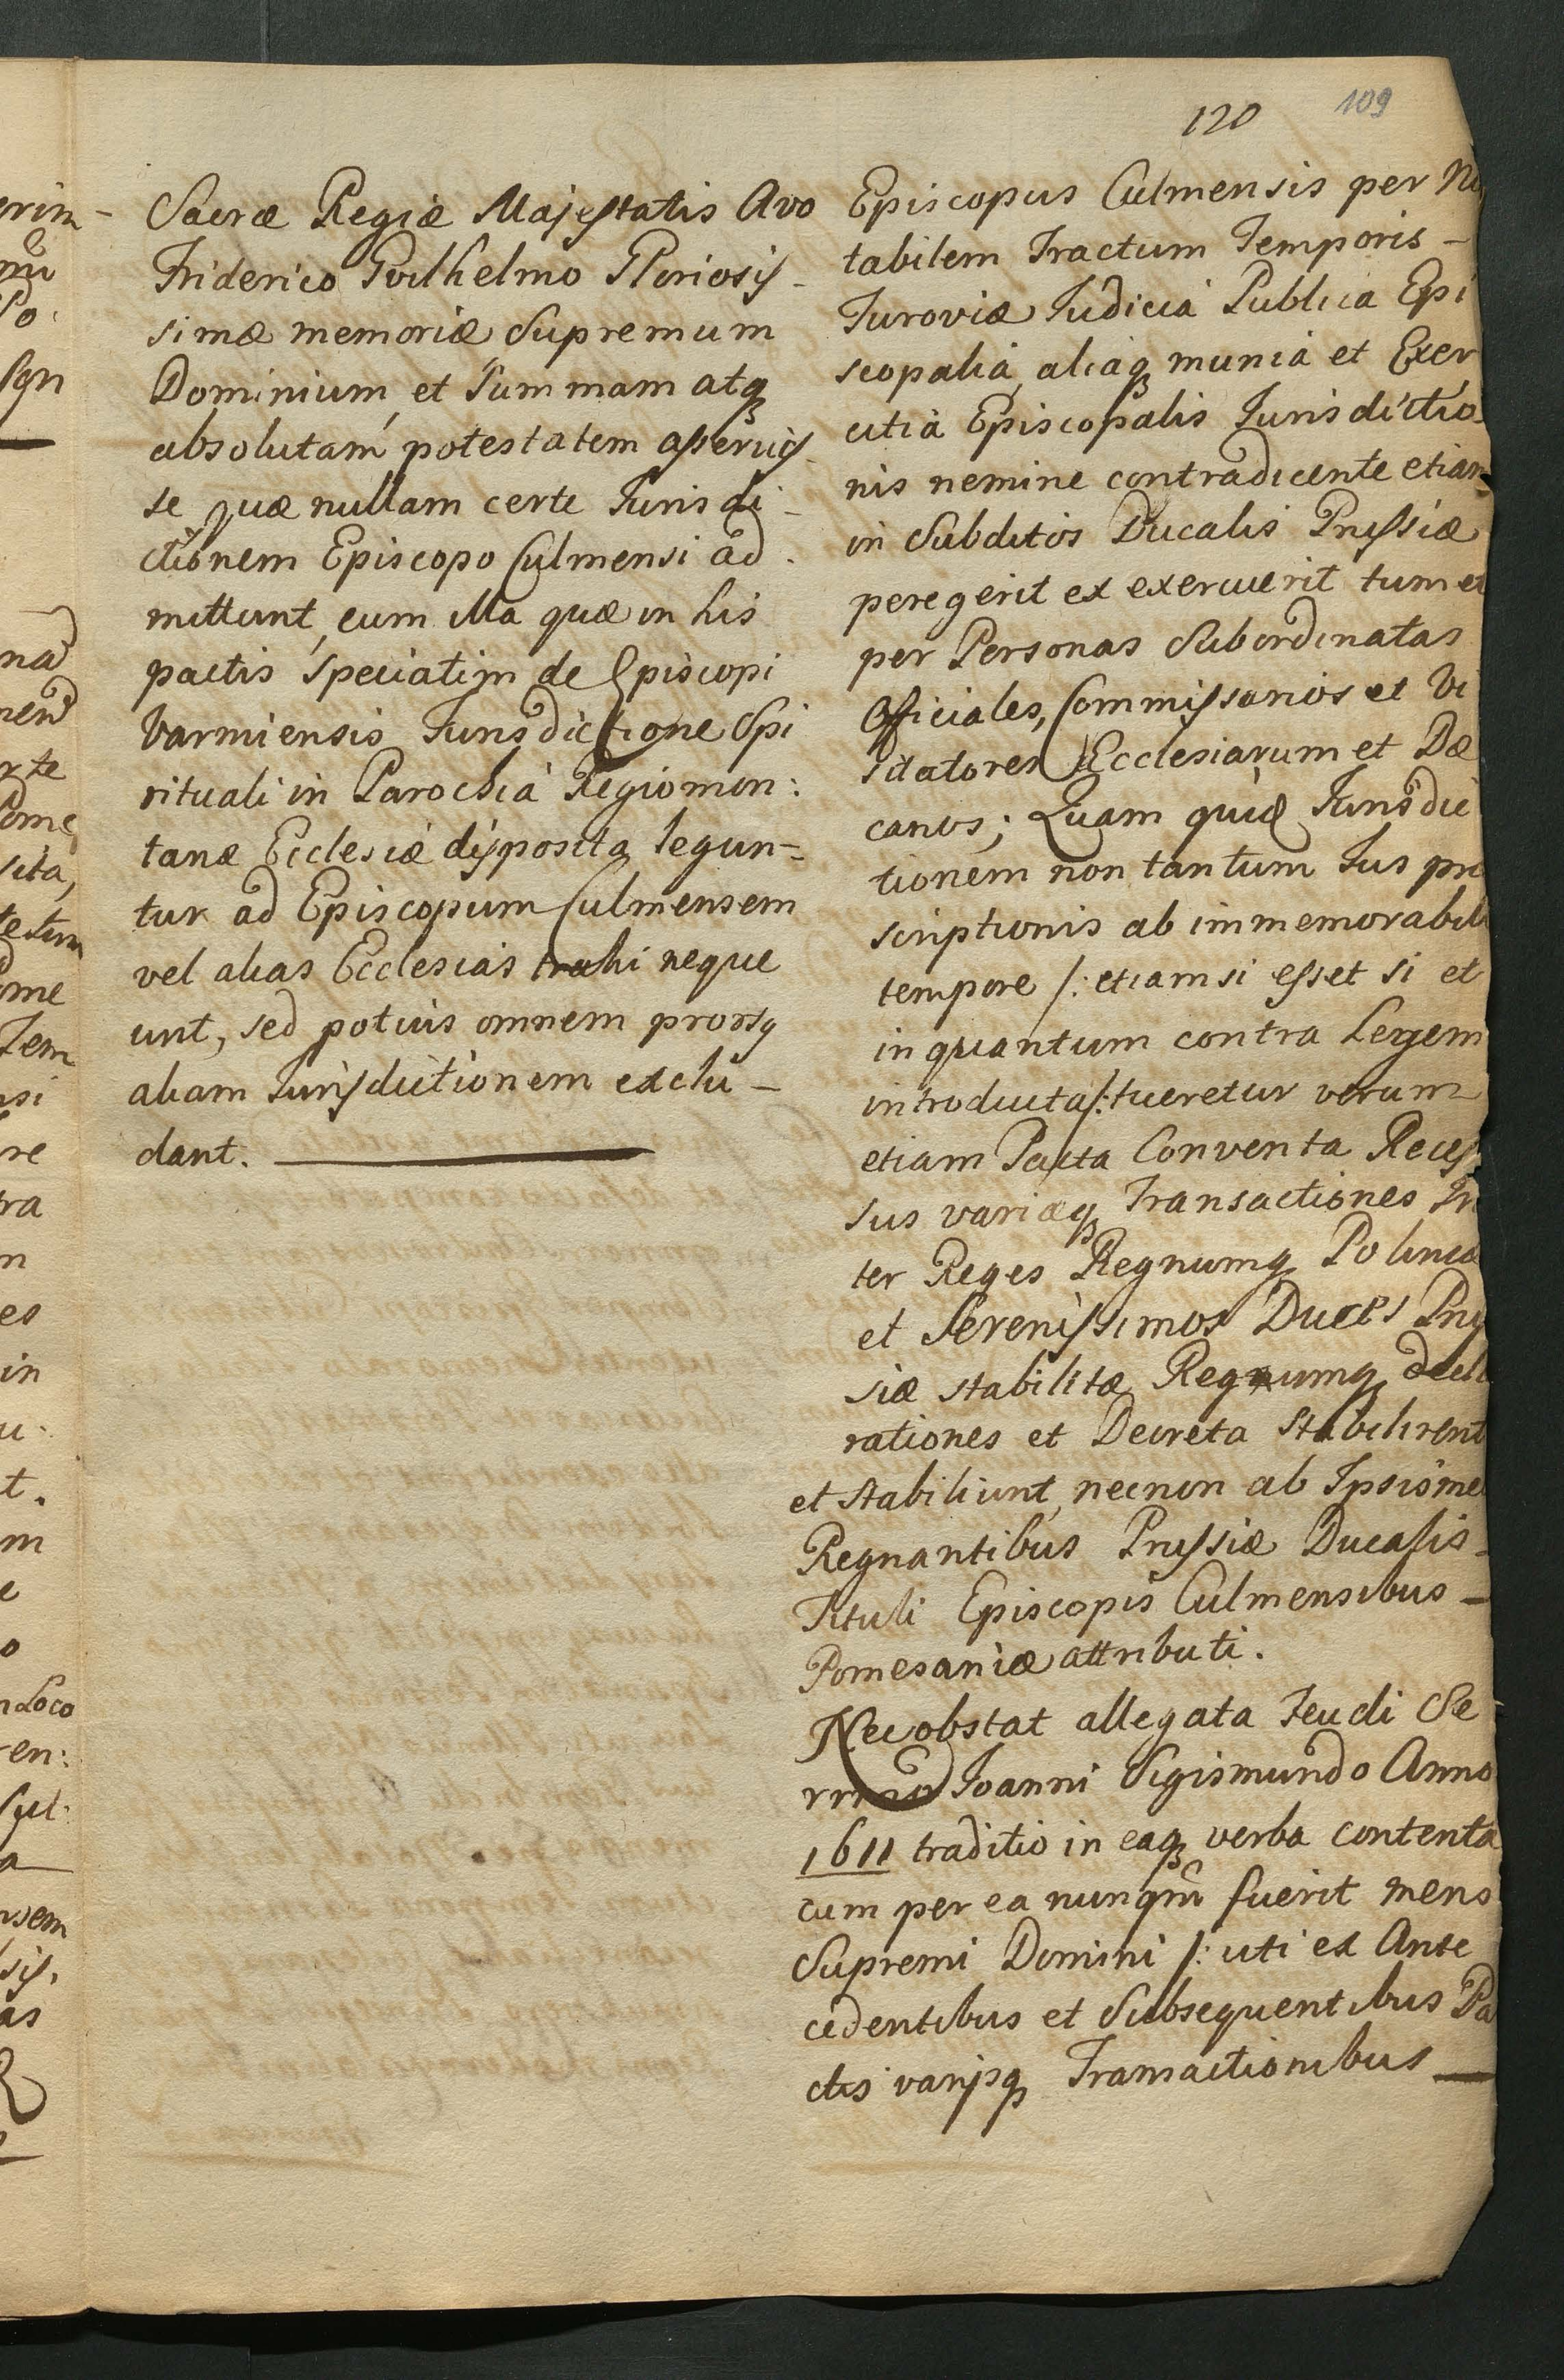 120 109
Sacræ Regiæ Majestatis Avo
Friderico Guilhelmo Gloriosis-
simæ memoriæ Supremum
Dominium, et Summam atq
absolutam potestatem asseruis-
se quæ nullam certe Jurisdi-
ctionem Episcopo Culmensi ad-
mittunt, cum illa quæ in his
pactis speciatim de Episcopi
Varmiensis Jurisdictione Spi
rituali in Parochia Regiomon:
tanæ Ecclesiæ disposita legun=
tur ad Episcopum Culmensem
vel alias Ecclesias trahi neque
unt, sed potius omnem prorsq
aliam Jurisdictionem exclu-
dant.
Episcopus Culmensis per No
tabilem Tractum Temporis-
Turoviæ Judicia Publica Epi
scopalia, aliaq munia et Exer
citia Episcopalis Jurisdictio-
nis nemine contradicente etiam
in Subditos Ducalis Prussiæ
peregerit et exercuerit tum et
per Personas Subordinatas
Officiales, Commissarios et Vi
sitatores Ecclesiarum et Dæ
canos; Quam quid Jurisdic
tionem non tantum Jus præ
scriptionis ab immemorabili
tempore /: etiamsi esset si et
inquantum contra Legem
introducta/: tueretur verum
etiam Pacta Conventa Reces
sus variæq Transactiones In
ter Reges Regnumq Poloniæ
et Serenissimos Duces Prus
siæ stabilitæ Regnumq decla
rationes et Decreta stabilirent
et stabiliunt, necnon ab Ipsismet
Regnantibus Prussiæ Ducalis-
Tituli Episcopis Culmensibus-
Pomesaniæ attributi.
Nec obstat allegata Feudi Se-
rrmo Joanni Sigismundo Anno
1611 traditio in eaq verba contenta
cum per ea nunqm fuerit mens
Supremi Domini /: uti ex Ante
cedentibus et Subsequentibus Pa
ctis varijsq Transactionibus